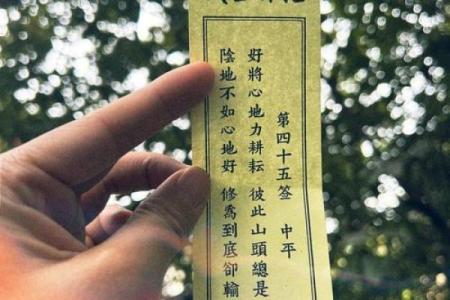 第四十五签 中平
好將心地力耕耘 彼此山頭總是
陰地不如心地好 修喬到底卻輸